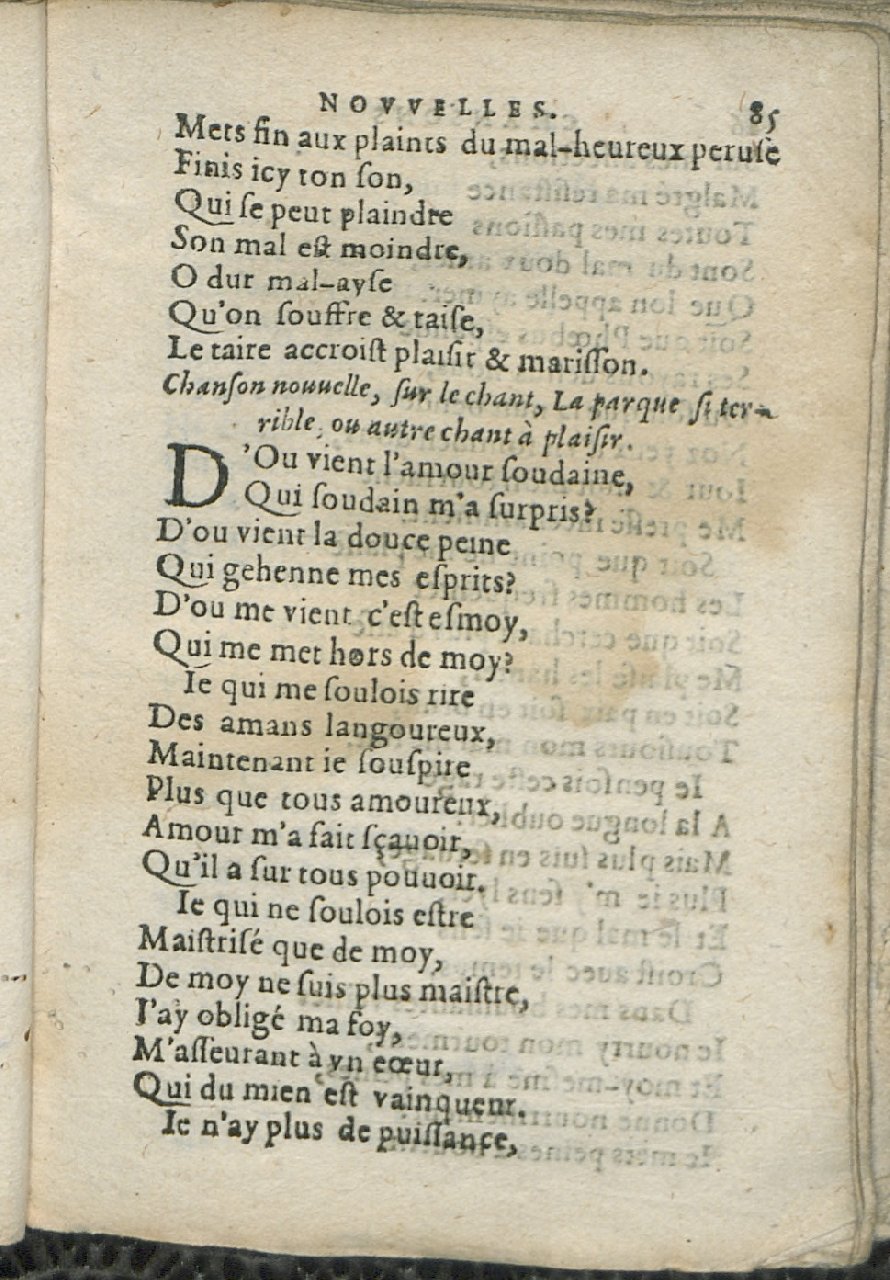 NOVVELLES. 85
Mets fin aux plaints du mal-heureux peruse
Finis icy ton ſon,
Qui ſe peut plaindre
Son mal eſt moindre,
O dur mal-ayſe
Qu'on ſouffre & taiſe,
Le taire accroiſt plaiſir & mariſſon.
Chanſon nouuelle, ſur le chant, La parque ſi ter-
rible, ou autre chant à plaiſir.
D'Ou vient l'amour ſoudaine,
Qui ſoudain m'a ſurpris?
D'ou vient la douce peine
Qui gehenne mes eſprits?
D'ou me vient c'eſt eſmoy,
Qui me met hors de moy?
Ie qui me ſoulois rire
Des amans langoureux,
Maintenant ie ſouſpire
Plus que tous amoureux,
Amour m'a fait ſçauoir,
Qu'il a ſur tous pouuoir.
Ie qui ne ſoulois eſtre
Maiſtriſé que de moy,
De moy ne ſuis plus maiſtre,
I'ay obligé ma foy,
M'aſſeurant à vn cœur,
Qui du mien eſt vainqueur.
Ie n'ay plus de puiſſance,